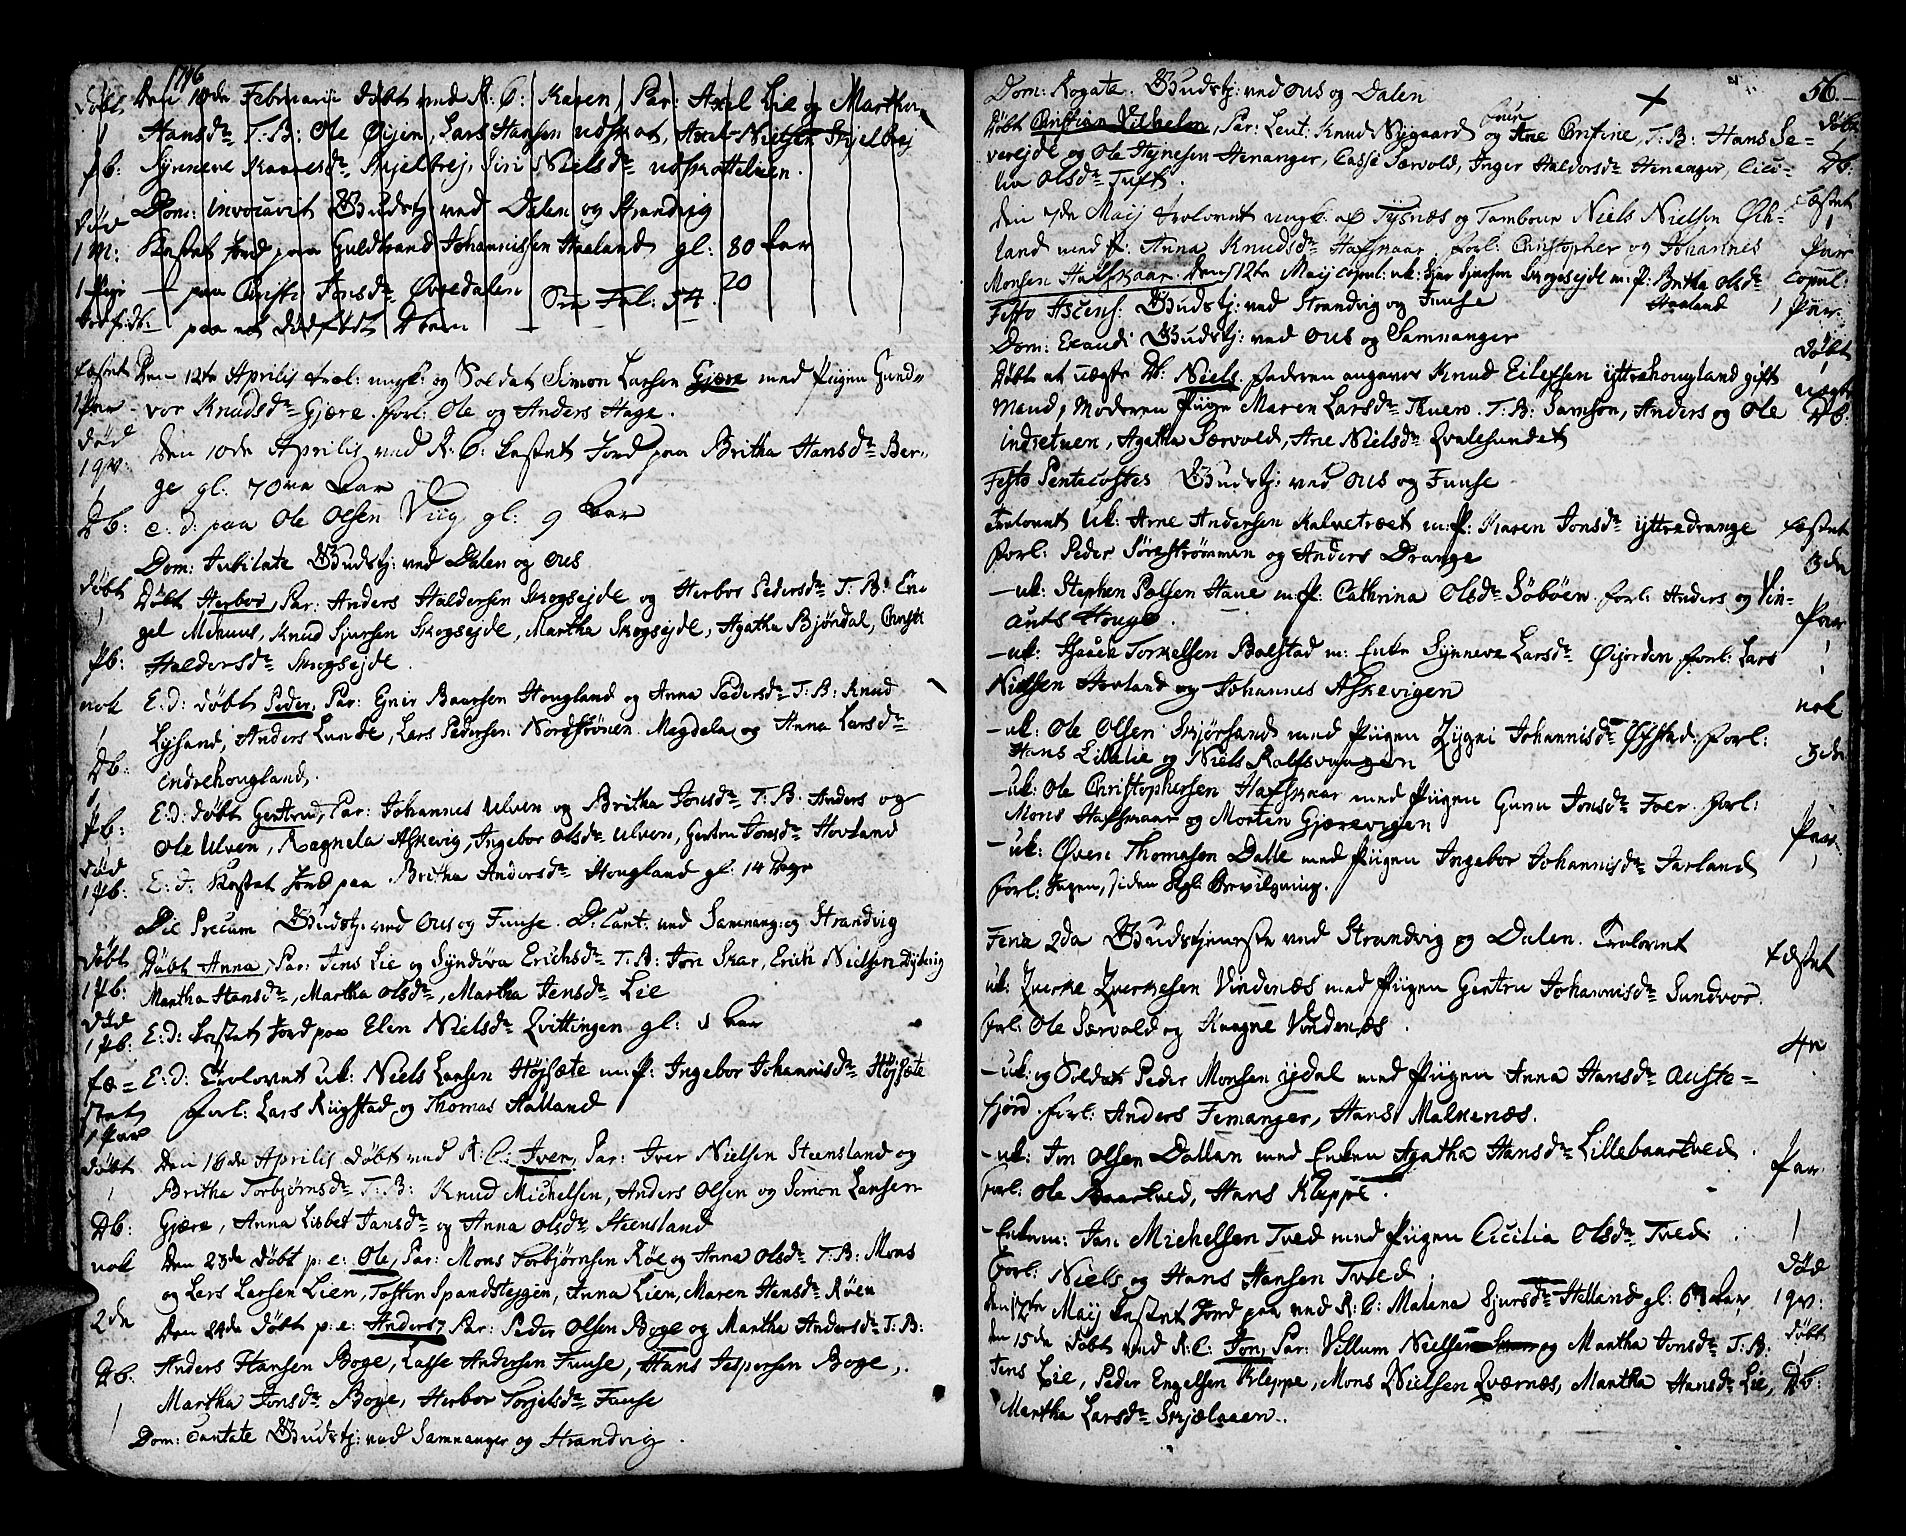 1796
døbt Den 10de Februarii døbt ved K: C: Karen, Par: Axel Lie og Martha
1 Hansdr T: B: Ole Øijen, Lars Hansen udskat, Axel Nielsen Skjelbrej
Pb: Synneve Skjelbrej, Siri Nielsdr
Dom: Invocavit Gudstj: ved Dalen og Strandvig
død
1 M: Kastet Jord paa Guldbrand Johannissen Haaland gl: 80 Aar
1 Pige — paa Christi Jonsdr Øvredalen 20
Sri Fal: 54
dødfødt — paa et dødfødt Db:
fæstet Den 12te Aprilis trol: ungk: og Soldat Simon Larsen Gjære med Pigen Gund=
1 Par vor Knudsdr Gjære. forl: Ole og Anders Hage.
død Den 10de Aprilis ved K: C: kastet Jord paa Britha Hansdr Ber=
1 qv: ge gl: 70 Aar
1 Db: e. d: paa Ole Olsen Viig gl: 9 Aar
Dom: Jubilate Gudstj: ved Dalen og Ous
døbt Døbt Herbor, Par: Anders Haldersen Skogsejde og Herbor Pedersdr T: B: En=
1 gel Mehuus, Knud Sjursen Skogsejde, Martha Skogsejde, Agatha Bjøndal, Christi
Pb: Haldersdr Skogsejde.
nok E: d: døbt Peder, Par: Gnier Baarsen Hougland og Anna Pedersdr T: B: Knud
1 Lysand, Anders Lunde, Lars Pedersen Nordstrønen Magdela og Anna Larsdr
Db: indrehougland,
1 E: d: døbt Gertrud, Par: Johannes Ulven og Britha Jonsdr T: B: Anders og
Pb: Ole Ulven, Ragnela Askevig, Ingebor Olsdr Ulven, Gertru Jonsdr Hovland
død
1 Pb: E: d: Kastet Jord paa Britha Andersdr Hougland gl: 14 Dage
Die Precum Gudstj: ved Ous og Fuuse. D: Cant: ved Samnang: og Strandvig
døbt Døbt Anna, Par: Jens Lie og Syndøva Erichsdr T: B: Jon Skar, Erich Nielsen Dysvig
1 Pb: Martha Hansdr, Martha Olsdr, Martha Jensdr Lie
død
1 Pb: E: d: kastet Jord paa Elen Nielsdr Qvittingen gl: 1 Aar
fæ= E: d: Trolovet uk: Niels Larsen Højsæte m: P: Ingebor Johannisdr Højsæte
stet forl: Lars Riigstad og Thomas Halland
1 Par
døbt Den 16de Aprilis døbt ved K: C: Iver, Par: Iver Nielsen Steensland og
1 Britha Torbjørnsdr T: B: Knud Michelsen, Anders Olsen og Simon Larsen
Db: Gjære, Anna Lisbet Jansdr og Anna Olsdr Steensland
nok Den 23de døbt p: e: Ole, Par: Mons Torbjørnsen Røe og Anna Olsdr T: B: Mons
og Lars Larsen Lien, Tosten Spandsteggen, Anna Lien, Maren Hansdr Røen
2de Den 24de døbt p: e: Anders, Par: Peder Olsen Boge og Martha Andersdr T: B:
Db: Anders Hansen Boge, Lasse Andersen Fuuse, Hans Jespersen Boge,
1 Martha Jonsdr Boge, Herbor Torjelsdr Fuuse
Dom: Cantate Gudstj: ved Samnanger og Strandvig.
56.
Dom: Rogate. Gudstj: ved Ous og Dalen
døbt Døbt Christian Vilhelm, Par: Leut: Knud Nygaard og Fru Ane Christine, T: B: Hans Se=
1 verejde og Ole Hejnesen Henanger, Lasse Særvold, Inger Haldorsdr Henanger, Cici=
Db: lia Olsdr Tuft.
fæstet Den 7de Maij trolovet ungk: af Tysnæs og Tambour Niels Nielsen Øch=
1 land med P: Anna Knudsdr Hafskaar forl: Christopher og Johannes
Par Monsen Hafskaar. Den 12te Maij copul: uk: Sjur Sjursen Skogsejde m: P: Britha Olsdr
copul: Haaland
1 Par. Festo Ascens: Gudstj: ved Strandvig og Fuuse
Dom: Exaudi Gudstj: ved Ous og Samnanger
døbt Døbt et uægte Db: Niels. faderen angaves Knud Eilefsen yttrehougland gift
uægte
Db: Mand, Moderen Pige Maren Larsdr Thuen. T: B: Samson, Anders og Ole
indretuen, Agatha Særvold, Ane Nielsdr Qvalesundet
Festo Pentecostes Gudstj: ved Ous og Fuuse
fæstet Trolovet Uk: Arne Andersen Kalvetræet m: P: Karen Jonsdr yttredrange
3de forl: Peder Sørestrømmen og Anders Drange
— uk: Stephen Polsen Haue m: P: Cathrina Olsdr Søbøen. forl: Anders og Vin=
Par cents Houge.
1 — uk: Haaen Torkelsen Bolstad m: Enke Synneve Larsdr Øijorden forl: Lars
Nielsen Hovland og Johannes Askevigen
nok — uk: Ole Olsen Skjørsand med Pigen Zygni Johannisdr Øfsted. forl:
3de Hans Lillelie og Niels Rolfsvaagen
— uk: Ole Christophersen Hafskaar med Pigen Guru Jonsdr Tver. forl:
Par. Mons Hafskaar og Morten Gjærevigen
1 — uk: Øven Thomasen Dalle med Pigen Ingebor Johannisdr Jarland
forl: Ingen, siden Kgl: Bevilgning.
fæstet Feria 2da Gudstjeneste ved Strandvig og Dalen. Trolovet
uk: Qverke Qverkesen Vindenæs med Pigen Gertru Johannisdr Sundvor.
forl: Ole Særvold og Haagne Vindenæs.
4re — uk: og Soldat Peder Monsen ydal med Pigen Anna Hansdr Auste=
fjord. forl: Anders Femanger, Hans Malkenæs.
Par. — uk: Jon Olsen Dallan med Enken Agatha Hansdr Lillebaartved.
forl: Ole Baartved, Hans Kleppe.
1 — Enkem: Jac: Michelsen Tved med Pigen Cicilia Olsdr Tved
død forl: Niels og Hans Hansen Tved.
1 qv: Den 12te Maij kastet Jord paa ved K: C: Malena Sjursdr Helland gl: 63 Aar
døbt Den 15de døbt ved K: C: Jon, Par: Villum Nielsen og Martha Jonsdr T: B:
1 Db: Jens Lie, Peder Engelsen Kleppe, Mons Nielsen Qværnæs, Martha Hansdr Lie,
Martha Larsdr Skjælaaen.